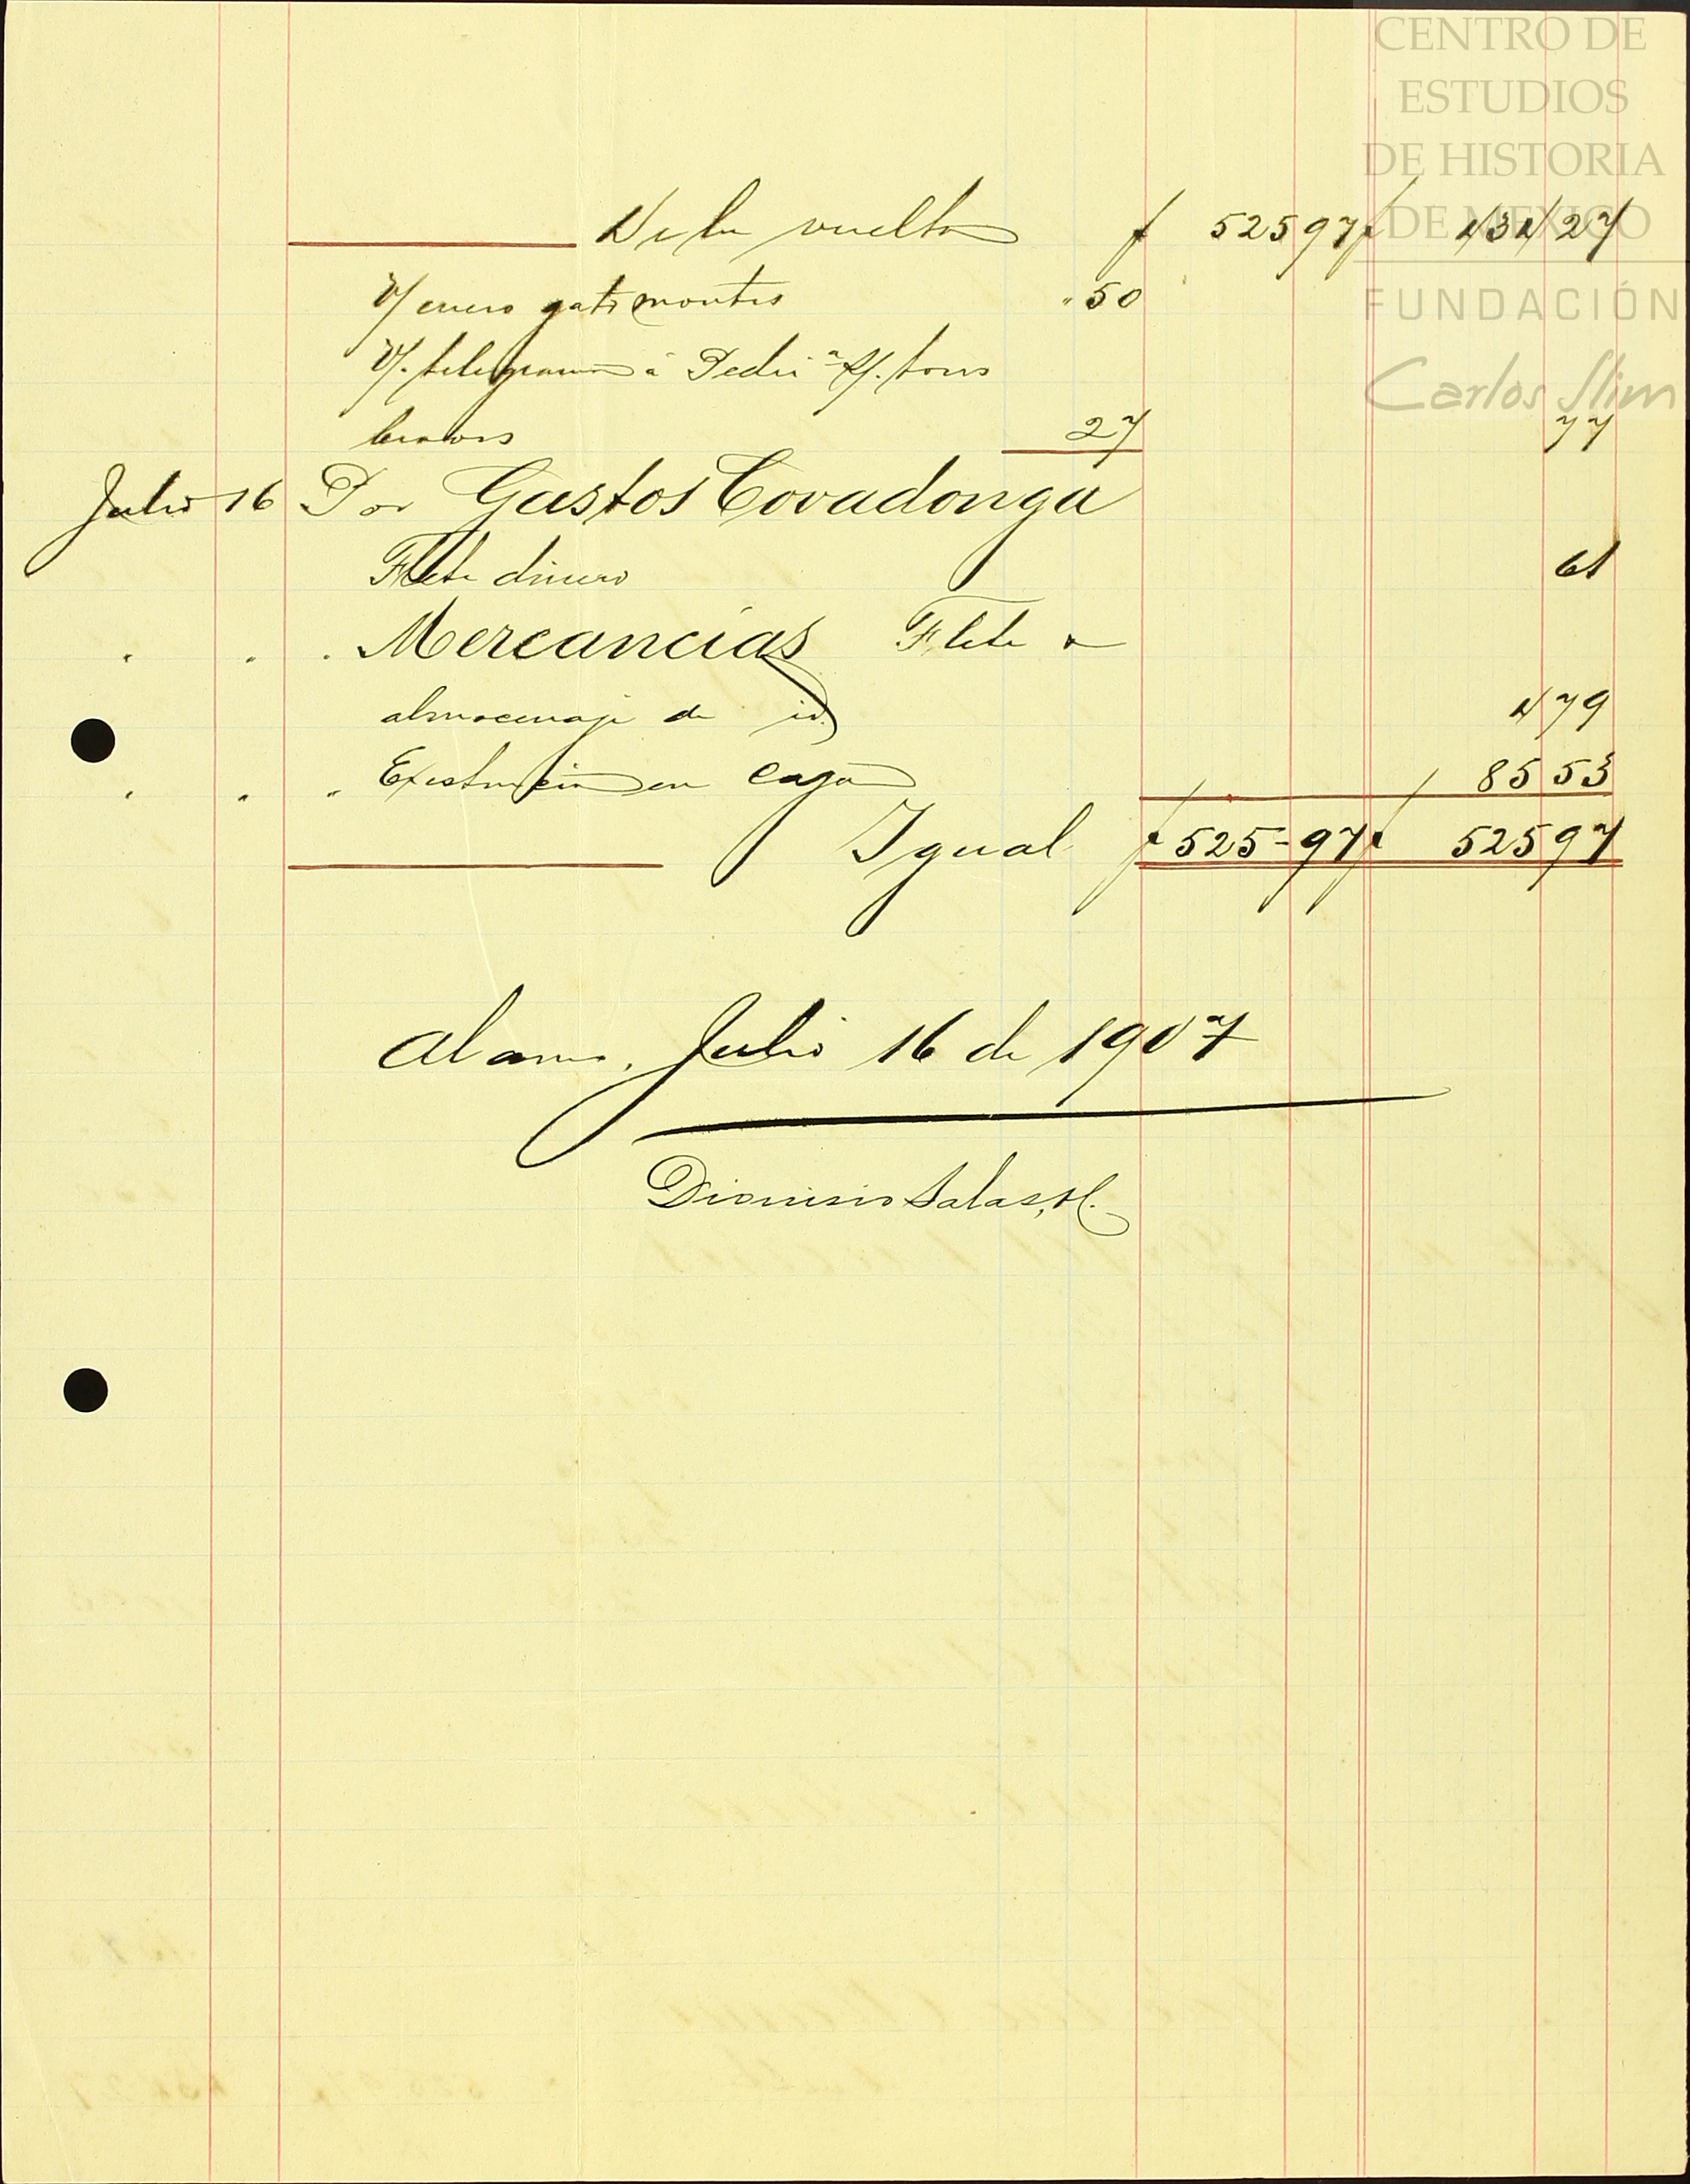 CENTRO DE
ESTUDIOS
DE HISTORIA
DE MEXICO
FUNDACIÓN
Carlos Slim
De la vuelta $ 525 97 $ 434 27
V/ cuero gato montes " 50
V/. telegrama á Pedri toros
bravos 27 77
Julio 16 Por Gastos Covadonga
Flete dinero 61
" " " Mercancías Flete
almacenaje de id. 4 79
" " " Existencia en Caja 85 53
Igual $ 525-97 $ 525 97
Alamo, Julio 16 de 1907
Dionisio Salas, H.